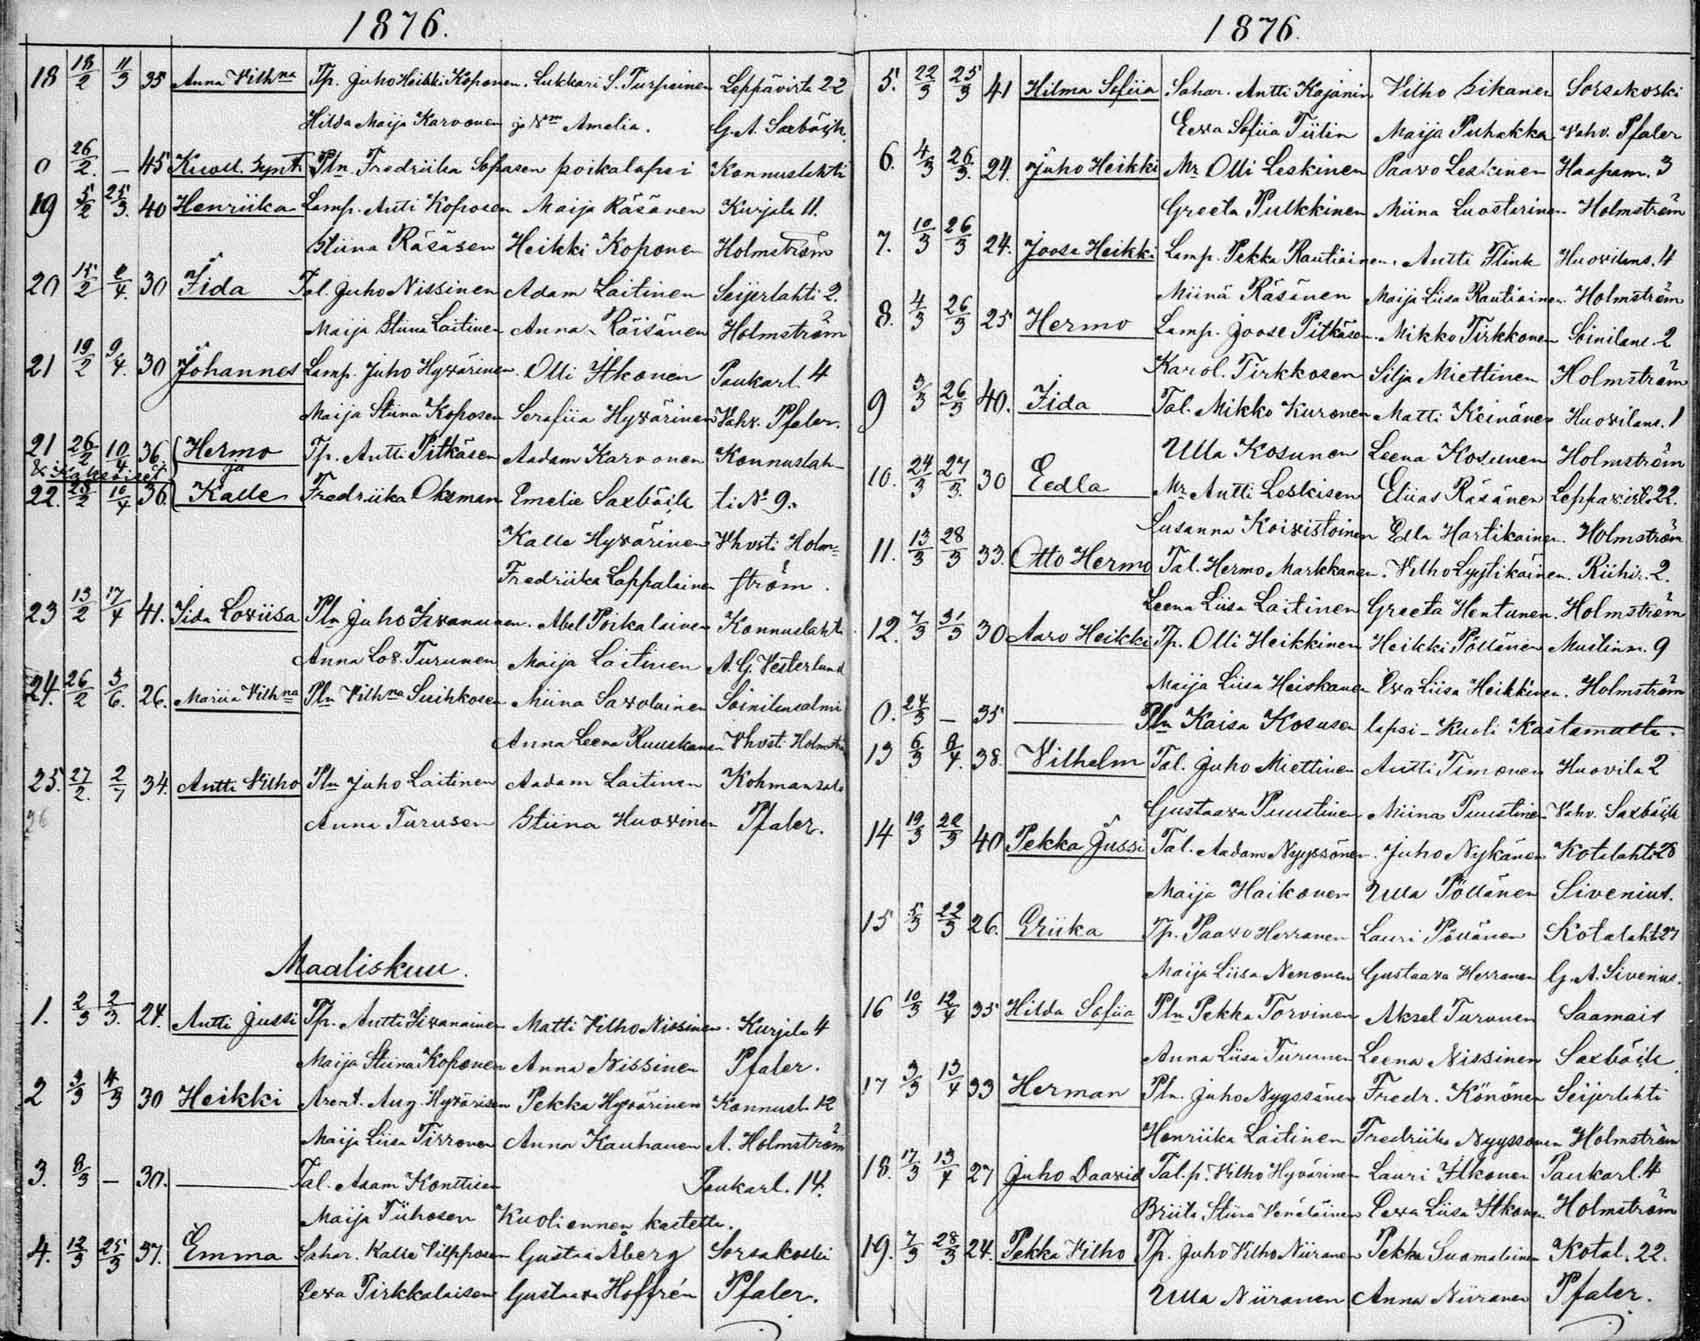 1876.
18 18/2 11/3 35 Anna Vilhna Tp. Juho Heikki Koponen. Lukkari S. Turpeinen Leppävirta 22
Hilda Maija Karvonen ja Vm Amelia. G. A. Saxbäck
0 26/2. — 45 Pln. Fredriika Sopasen poikalapsi Konnuslahti
19 5/2 25/3. 40 Henriika Lamp. Anti Koposen Maija Räsänen Kurjala 11.
Stiina Räsäsen Heikki Koponen Holmström
20 15/2 2/4. 30 Iida Tal. Juho Nissinen Adam Laitinen Seijerlahti 2.
Maija Stiina Laitinen Anna Räisänen Holmström
21 19/2 9/4. 30 Johannes Lamp. Juho Hyvärinen. Olli Itkonen Paukarl. 4
Maija Stiina Koposen Serafiia Hyvärinen Vahv. Pfaler.
21 26/2 10/4 36. Hermo Tp. Antti Pitkäsen Aadam Karvonen Konnuslah-
& Kaksoiset ja
22. 26/2 10/4 36. Kalle Fredriika Oksman Emelie Saxbäck ti No 9.
Kalle Hyvärinen Vhvsti Holm-
Fredriika Lappalainen ström.
23 13/2 17/4 41. Iida Loviisa Pln Juho Iivanainen. Abel Poikalainen Konnuslahti
Anna Lov. Turunen Maija Laitinen A. G. Vesterlund
24. 26/2 5/6. 26. Mariia Vilhna Pln Vilhna Suihkosen Miina Savolainen Soinilansalmi
Anna Leena Ruuskanen Vhvsti Holmstr
25. 27/2. 2/7 34. Antti Vilho Pln Juho Laitinen Aadam Laitinen Kohmansalo
26 Anna Turusen Stiina Huovinen Pfaler.
Maaliskuu.
1. 2/3 2/3. 24. Antti Jussi Tp. Antti Iivanainen Matti Vilho Nissinen. Kurjala 4
Maija Stiina Koponen Anna Nissinen Pfaler.
2 3/3 4/3 30 Heikki Arent. Aug Hyvärisen Pekka Hyvärinen Konnusl. 12
Maija Liisa Tirronen Anna Kauhanen A. Holmström
3. 8/3 — 30. — Tal. Adam Konttisen Paukarl. 14.
Maija Tiihosen Kuoli ennen kastetta.
4. 12/3 25/3 37. Emma Sahar. Kalle Vilpposen Gustaa Åberg Sorsakoski
Eeva Pirkkalaisen Gustaava Hoffrén Pfaler.
1876.
5. 22/3 25/3 41 Hilma Sofiia Sahar. Antti Kajanin Vilho Sikanen Sorsakoski
Eeva Sofiia Tiilin Maija Puhakka Vahv. Pfaler
6. 4/3 26/3. 24. Juho Heikki Mr Olli Leskinen Paavo Leskinen Haapam. 3
Greeta Pulkkinen Miina Luostarinen Holmström
7. 10/3 26/3 24. Joosa Heikki Lamp. Pekka Rautiainen. Antti Flink Huovilans. 4
Miinä Räsänen Maija Liisa Rautiainen. Holmström
8. 4/3 26/3 25 Hermo Lamp. Joose Pitkäsen. Mikko Tirkkonen Soinilans. 2
Karol. Tirkkosen Silja Miettinen Holmström
9 3/3 26/3 40. Iida Tal. Mikko Kuronen Matti Keinänen Huovilans. 1
Ulla Kosunen Leena Kosunen Holmström
10. 24/3 27/3. 30 Eedla Mr. Antti Leskisen Eliias Räsänen Leppävirt. 22.
Susanna Koivistoinen Edla Hartikainen. Holmström
11. 13/3 28/3 33. Otto Hermo Tal. Hermo Markkanen. Vilho Lyytikäinen. Riihir. 2.
Leena Liisa Laitinen Greeta Hentunen. Holmström
12. 7/3 31/3 30 Aaro Heikki Tp. Olli Heikkinen Heikki Pöllänen Mustinm. 9
Maija Liisa Heiskanen Eva Liisa Heikkinen. Holmström
0. 24/3 — 35 — Pln Kaisa Kosusen lapsi - Kuoli Kastamatta.
13 6/3 9/4. 38. Vilhelm Tal. Juho Miettinen Antti Timonen Huovila 2
Gustaava Puustinen Miina Puustinen Vahv. Saxbäck
14 19/3 22/3 40 Pekka Jussi Tal. Aadam Nyyssönen. Juho Nykänen Kotalahti 28
Maija Haikonen Ulla Pöllänen Sivenius.
15 5/3 22/3 26. Eriika Tp. Paavo Herranen Lauri Pöllänen Kotalaht. 27
Maija Liisa Nenonen Gustaava Herranen G. A. Sivenius.
16 10/3 12/4 35 Hilda Sofiia Pln Pekka Torvinen Aksel Turunen Saamais
Anna Liisa Turunen Leena Nissinen Saxbäck
17 3/3 13/4 33 Herman Pln. Juho Nyyssönen Fredr. Könönen Seijerlahti
Henriika Laitinen Fredriika Nyyssönen Holmström
18. 17/3 13/4 27 Juho Daavid Tal. p. Vilho Hyvärinen Lauri Itkonen Paukarl. 4
Briita Stiina Venäläinen Eeva Liisa Itkonen Holmström
19. 7/3 28/3 24. Pekka Vilho Tp. Juho Vilho Niiranen Pekka Suomalainen Kotal. 22.
Ulla Niiranen Anna Niiranen Pfaler.